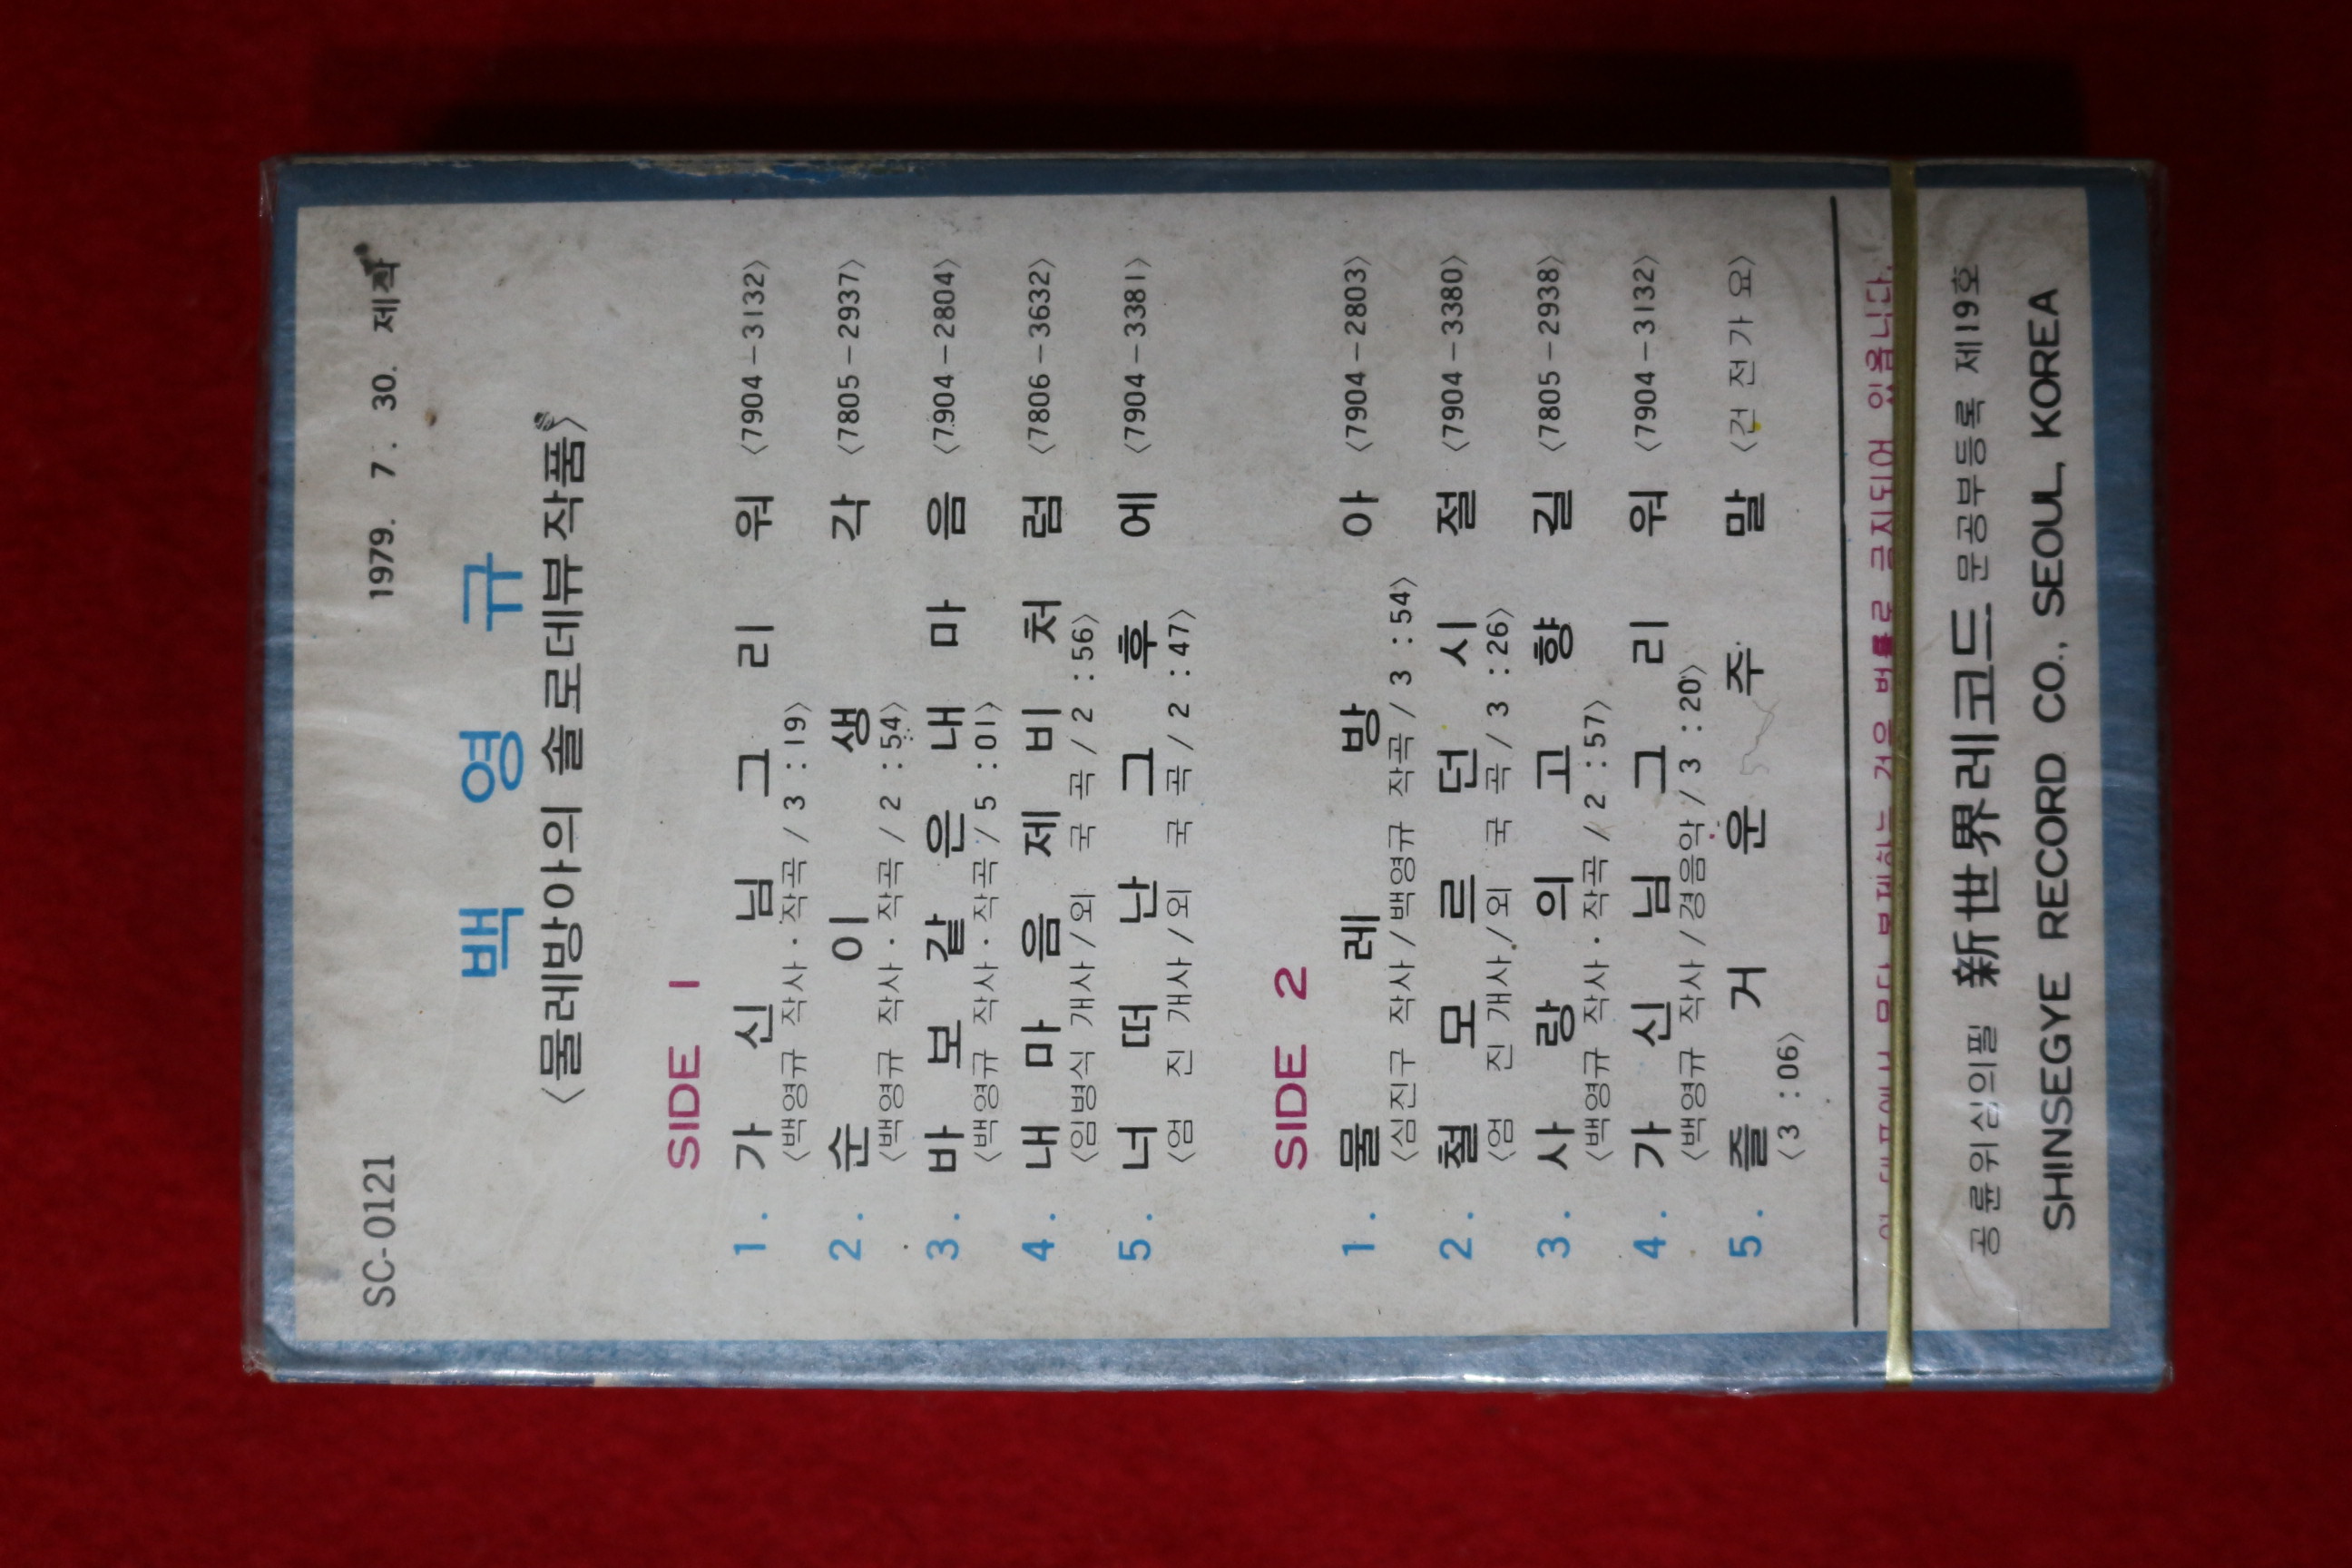 SC-0121 1979. 7. 30. 제작
백 영 규
〈물레방아의 솔로데뷰작품〉
SIDE 1
1. 가 신 님 그 리 워 〈7904-3132〉
〈백영규 작사·작곡/3:19〉
2. 순 이 생 각 〈7805-2937〉
〈백영규 작사·작곡/2:54〉
3. 바 보 같 은 내 마 음 〈7904-2804〉
〈백영규 작사·작곡/5:01〉
4. 내 마 음 제 비 처 럼 〈7806-3632〉
〈임병식 개사/외 국 곡/2:56〉
5. 너 떠 난 그 후 에 〈7904-3381〉
〈엄 진 개사/외 국 곡/2:47〉
SIDE 2
1. 물 레 방 아 〈7904-2803〉
〈심진구 작사/백영규 작곡/3:54〉
2. 철 모 르 던 시 절 〈7904-3380〉
〈엄 진 개사/외 국 곡/3:26〉
3. 사 랑 의 고 향 길 〈7805-2938〉
〈백영규 작사·작곡/2:57〉
4. 가 신 님 그 리 워 〈7904-3132〉
〈백영규 작사/경음악/3:20〉
5. 즐 거 운 주 말 〈건 전 가 요〉
〈3:06〉
것은 법률로 금지되어 있읍니다.
공륜위심의필 新世界레코드 문공부등록 제19호
SHINSEGYE RECORD CO., SEOUL, KOREA